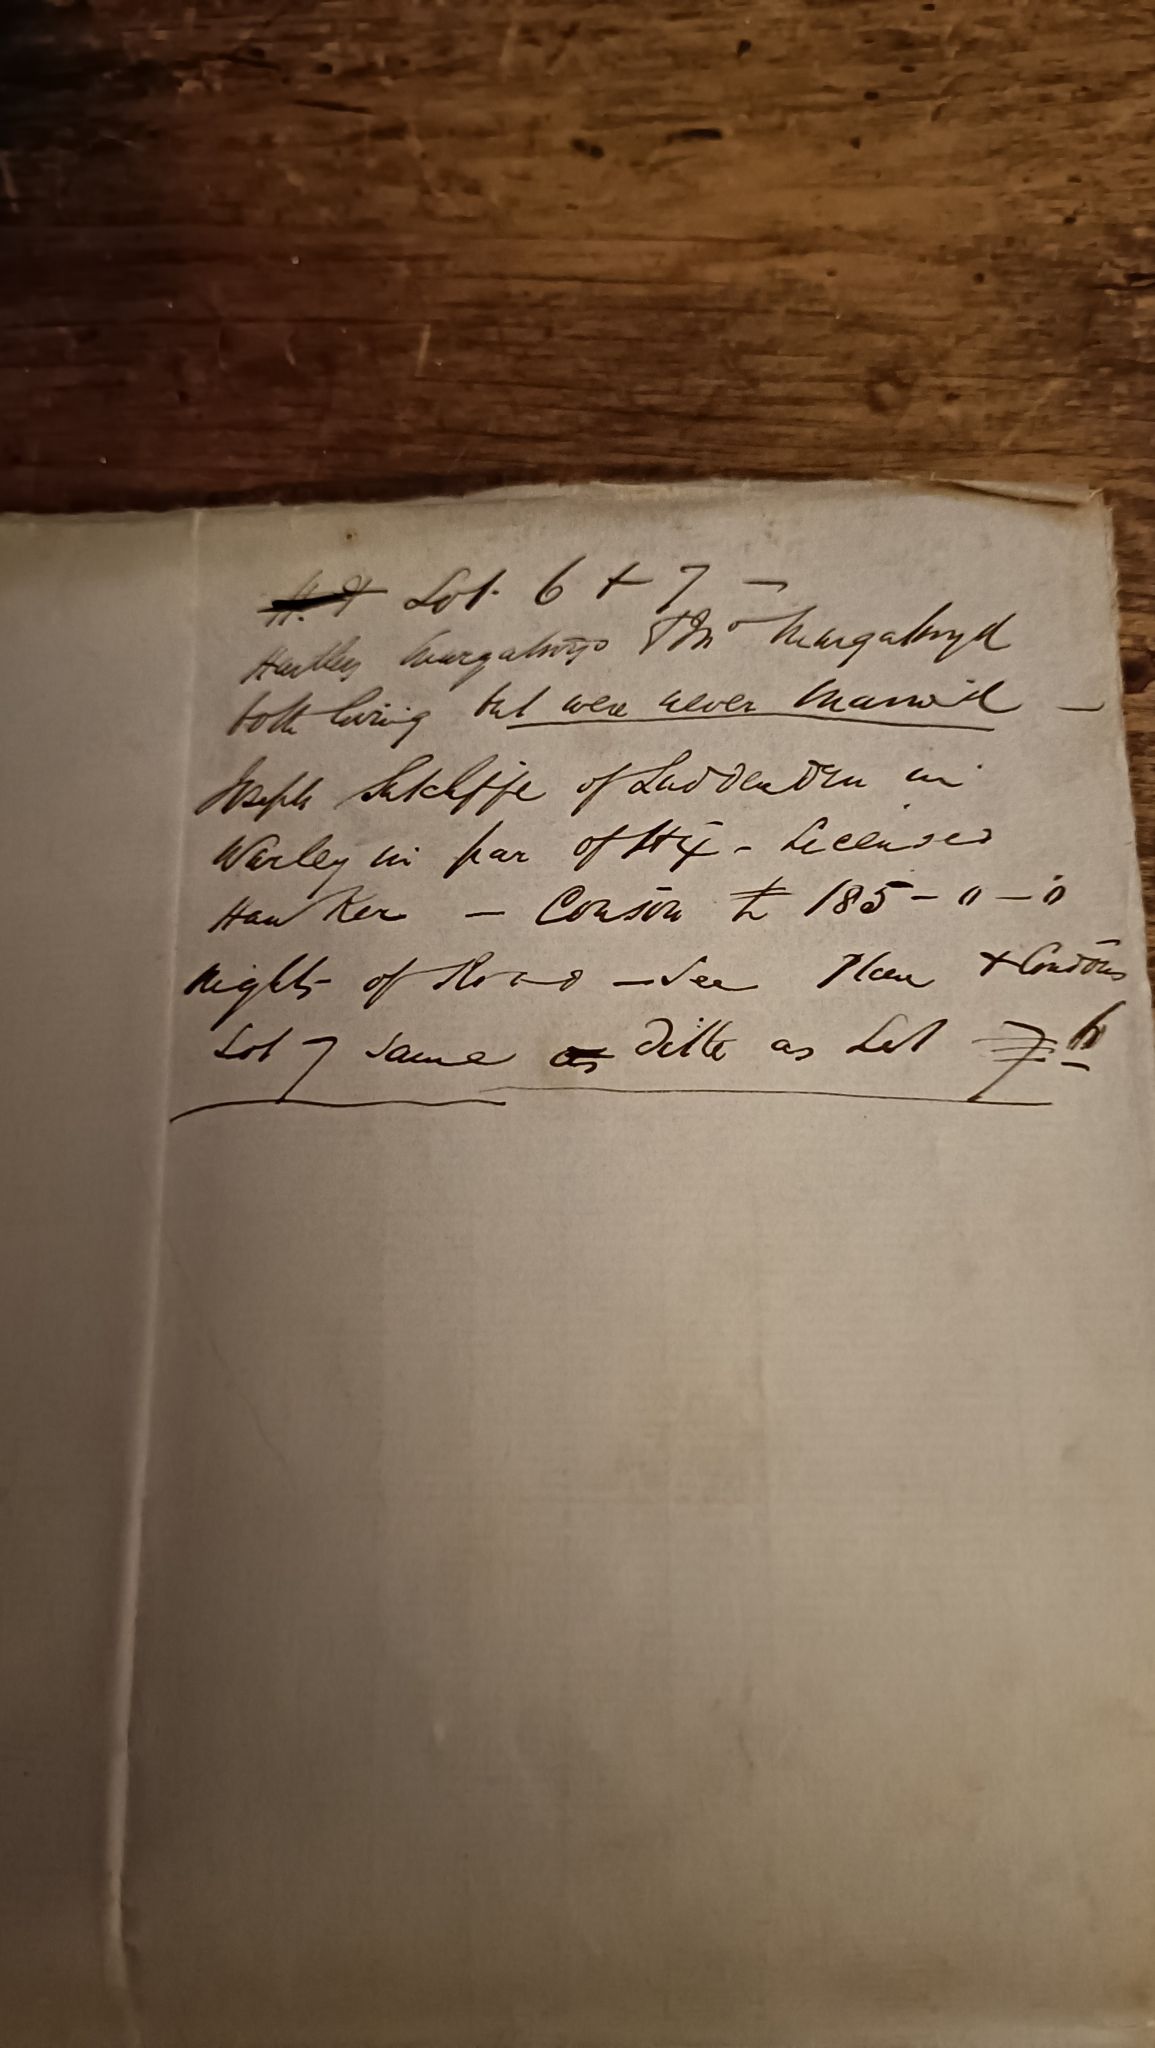 Lot 6 + 7 -
Hartley Murgatroyd & Tho Murgatroyd
both living but were never married -
Joseph Sutcliffe of Luddenden in
Warley in par of Hfx - Licensed
Hawker - Conson £ 185-0-0
Rights of Road - See Plan + Condons
Lot 7 same as Ditto as Lot 7 6